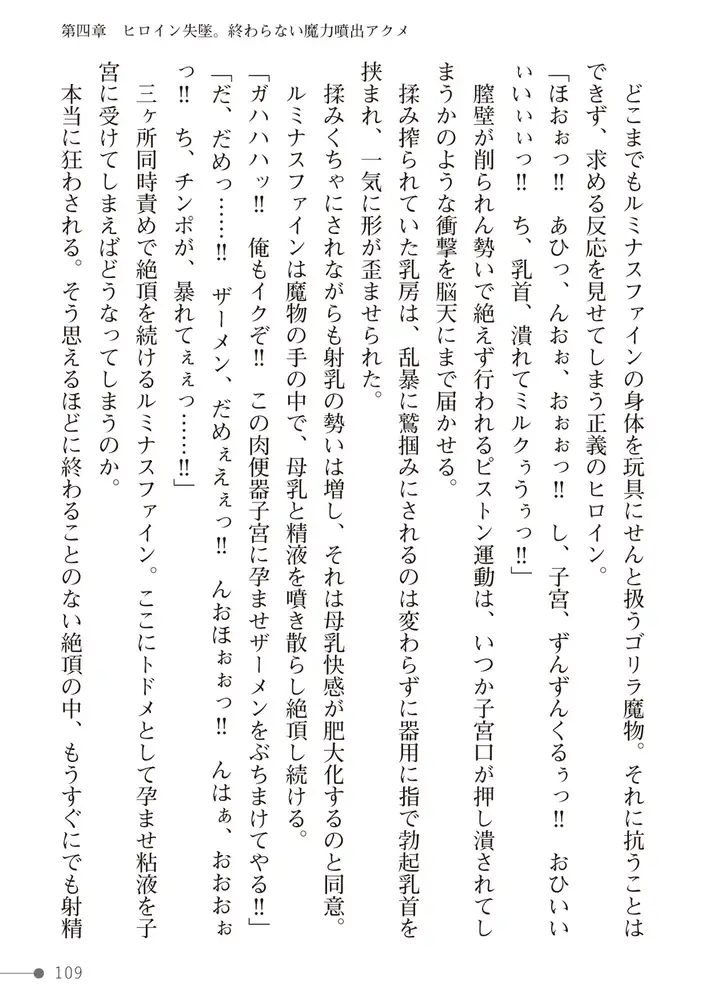 第四章　ヒロイン失墜。終わらない魔力噴出アクメ
　どこまでもルミナスファインの身体を玩具にせんと扱うゴリラ魔物。それに抗うことは
できず、求める反応を見せてしまう正義のヒロイン。
「ほおぉっ!!　あひっ、んおぉ、おぉぉっ!!　し、子宮、ずんずんくるぅっ!!　おひいい
ぃいいぃぃっ!!　ち、乳首、潰れてミルクぅうぅっ!!」
　膣壁が削られん勢いで絶えず行われるピストン運動は、いつか子宮口が押し潰されてし
まうかのような衝撃を脳天にまで届かせる。
　揉み搾られていた乳房は、乱暴に鷲掴みにされるのは変わらずに器用に指で勃起乳首を
挟まれ、一気に形が歪ませられた。
　揉みくちゃにされながらも射乳の勢いは増し、それは母乳快感が肥大化するのと同意。
　ルミナスファインは魔物の手の中で、母乳と精液を噴き散らし絶頂し続ける。
「ガハハハッ!!　俺もイクぞ!!　この肉便器子宮に孕ませザーメンをぶちまけてやる!!」
「だ、だめっ……!!　ザーメン、だめぇえぇっ!!　んおほぉぉっ!!　んはぁ、おおおぉ
っ!!　ち、チンポが、暴れてぇぇっ……!!」
　三ヶ所同時責めで絶頂を続けるルミナスファイン。ここにトドメとして孕ませ粘液を子
宮に受けてしまえばどうなってしまうのか。
　本当に狂わされる。そう思えるほどに終わることのない絶頂の中、もうすぐにでも射精
109